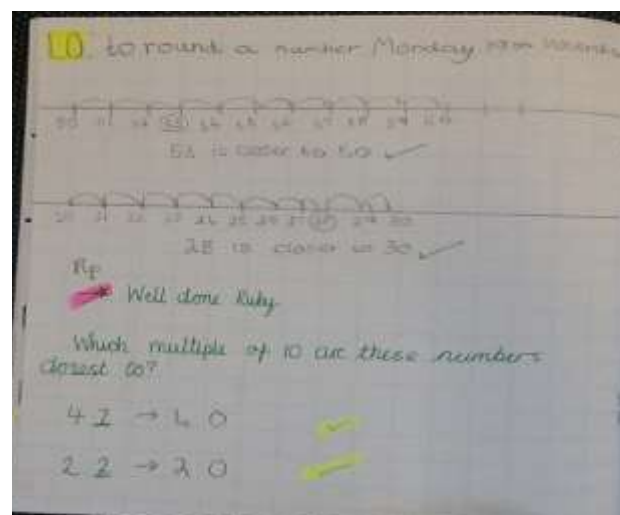 LO. to round a number Monday
50 51 52 53 54 55 56 57 58 59 60
53 is closer to 50
20 21 22 23 24 25 26 27 28 29 30
28 is closer to 30
Well done Ruby
Which multiple of 10 are these numbers
closest to?
42 → 40
22 → 20